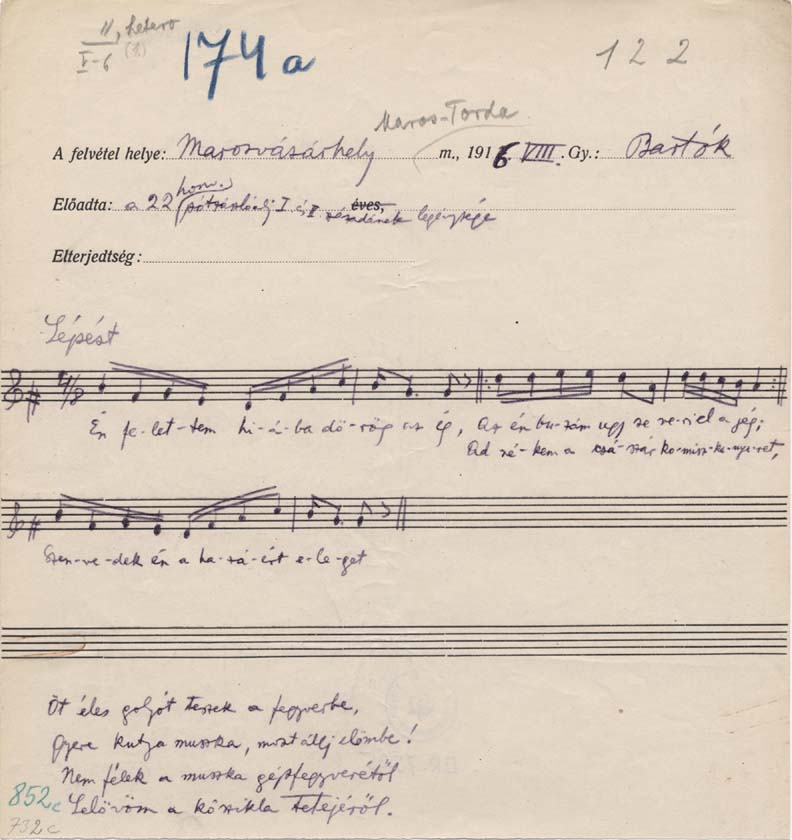 II, hetero
I-6 (1.)
174a
122
Maros-Torda
A felvétel helye: Marosvásárhely m., 1916 VIII. Gy.: Bartók
honv.
Előadta: a 22 pótzászlóalj I és I éves, századának legénysége
Elterjedtség:
Lépést
4/8
Én fe-let-tem hi-á-ba dö-rög az ég, Az én bu-zám ugy se ve-ri el a jég;
Ad né-kem a császár ko-misz-ke-nye-ret,
Szen-ve-dek én a ha-zá-ért e-le-get
Öt éles golyót teszek a fegyverbe,
Gyere kutya muszka, most állj elömbe!
Nem félek a muszka gépfegyverétől
Lelövöm a kőszikla tetejéről.
852c
732c